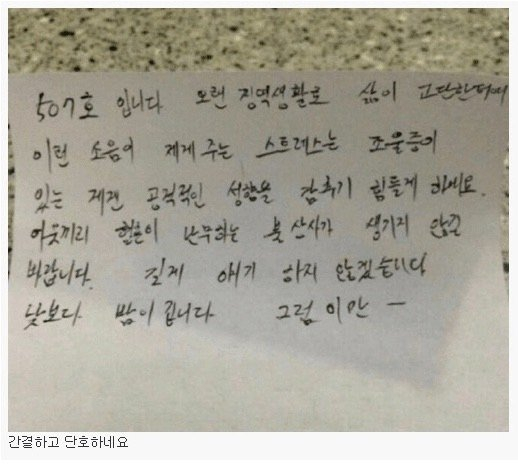 507호 입니다 오랜 징역생활로 삶이 고단한터에
이런 소음이 제게 주는 스트레스는 조울증이
있는 제겐 공격적인 성향을 감추기 힘들게 하네요.
이웃끼리 혈흔이 난무하는 불상사가 생기지 않길
바랍니다. 길게 얘기 하지 않겠습니다
낮보다 밤이 깁니다 그럼 이만 ㅡ
간결하고 단호하네요